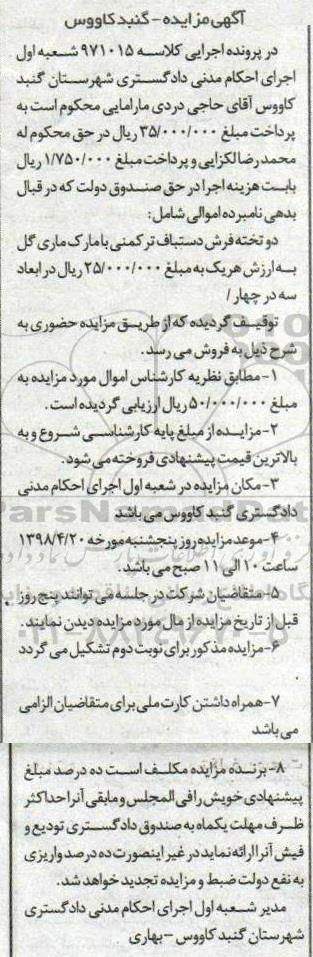 آگهی مزایده - گنبد کاووس
در پرونده اجرایی کلاسه ۹۷۱۰۱۵ شعبه اول
اجرای احکام مدنی دادگستری شهرستان گنبد
کاووس آقای حاجی دردی مارامایی محکوم است به
پرداخت مبلغ ۳۵/۰۰۰/۰۰۰ ریال در حق محکوم له
محمدرضا لکزایی و پرداخت مبلغ ۱/۷۵۰/۰۰۰ ریال
بابت هزینه اجرا در حق صندوق دولت که در قبال
بدهی نامبرده اموالی شامل:
دو تخته فرش دستباف ترکمنی با مارک ماری گل
به ارزش هر یک به مبلغ ۲۵/۰۰۰/۰۰۰ ریال در ابعاد
سه در چهار/
توقیف گردیده که از طریق مزایده حضوری به
شرح ذیل به فروش می رسد.
۱- مطابق نظریه کارشناس اموال مورد مزایده به
مبلغ ۵۰/۰۰۰/۰۰۰ ریال ارزیابی گردیده است.
۲- مزایده از مبلغ پایه کارشناسی شروع و به
بالاترین قیمت پیشنهادی فروخته می شود.
۳- مکان مزایده در شعبه اول اجرای احکام مدنی
دادگستری گنبد کاووس می باشد
۴- موعد مزایده روز پنجشنبه مورخه ۱۳۹۸/۴/۲۰
ساعت ۱۰ الی ۱۱ صبح می باشد.
۵- متقاضیان شرکت در جلسه می توانند پنج روز
قبل از تاریخ مزایده از مال مورد مزایده دیدن نمایند.
۶- مزایده مذکور برای نوبت دوم تشکیل می گردد
.
۷- همراه داشتن کارت ملی برای متقاضیان الزامی
می باشد
۸- برنده مزایده مکلف است ده درصد مبلغ
پیشنهادی خویش را فی المجلس و مابقی آنرا حداکثر
ظرف مهلت یکماه به صندوق دادگستری تودیع و
فیش آنرا ارائه نماید در غیر اینصورت ده درصد واریزی
به نفع دولت ضبط و مزایده تجدید خواهد شد.
مدیر شعبه اول اجرای احکام مدنی دادگستری
شهرستان گنبد کاووس - بهاری